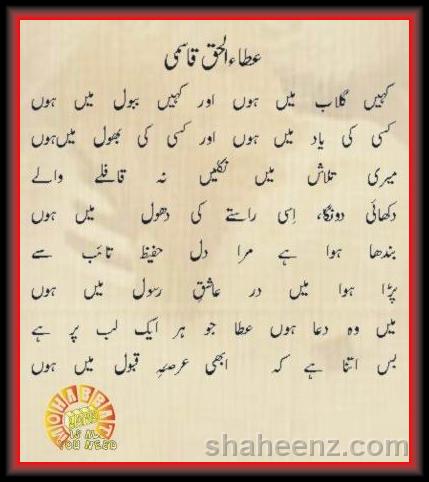 عطاء الحق قاسمی
کہیں گلاب میں ہوں اور کہیں ببول میں ہوں
کسی کی یاد میں ہوں اور کسی کی بھول میں ہوں
میری تلاش میں نکلیں نہ قافلے والے
دکھائی دونگا، اِسی راستے کی دھول میں ہوں
بندھا ہوا ہے مرا دل حفیظ تائب سے
پڑا ہوا میں در عاشقِ رسول میں ہوں
میں وہ دعا ہوں عطا جو ہر ایک لب پر ہے
بس اتنا ہے کہ ابھی عرصۂ قبول میں ہوں
MOHABBAT
IS ALL
YOU NEED
shaheenz.com